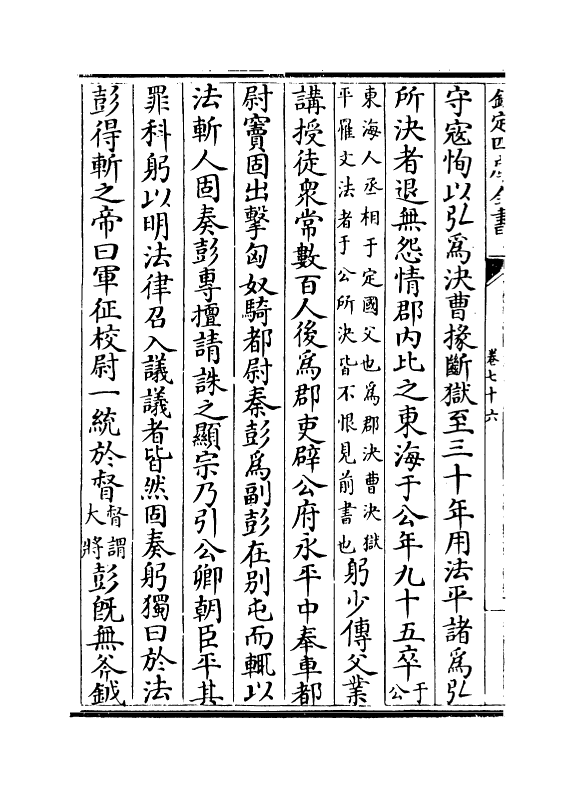 欽定四庫全書
卷七十六
守寇恂以弘為決曹掾斷獄至三十年用法平諸為弘
所決者退無怨情郡内比之東海于公年九十五卒于公
東海人丞相于定國父也為郡決曹決獄
平罹文法者于公所決皆不恨見前書也躬少傳父業
講授徒衆常數百人後為郡吏辟公府永平中奉車都
尉竇固出擊匈奴騎都尉秦彭為副彭在别屯而輒以
法斬人固奏彭專擅請誅之顯宗乃引公卿朝臣平其
罪科躬以明法律召入議議者皆然固奏躬獨曰於法
彭得斬之帝曰軍征校尉一統於督督謂大將彭既無斧鉞